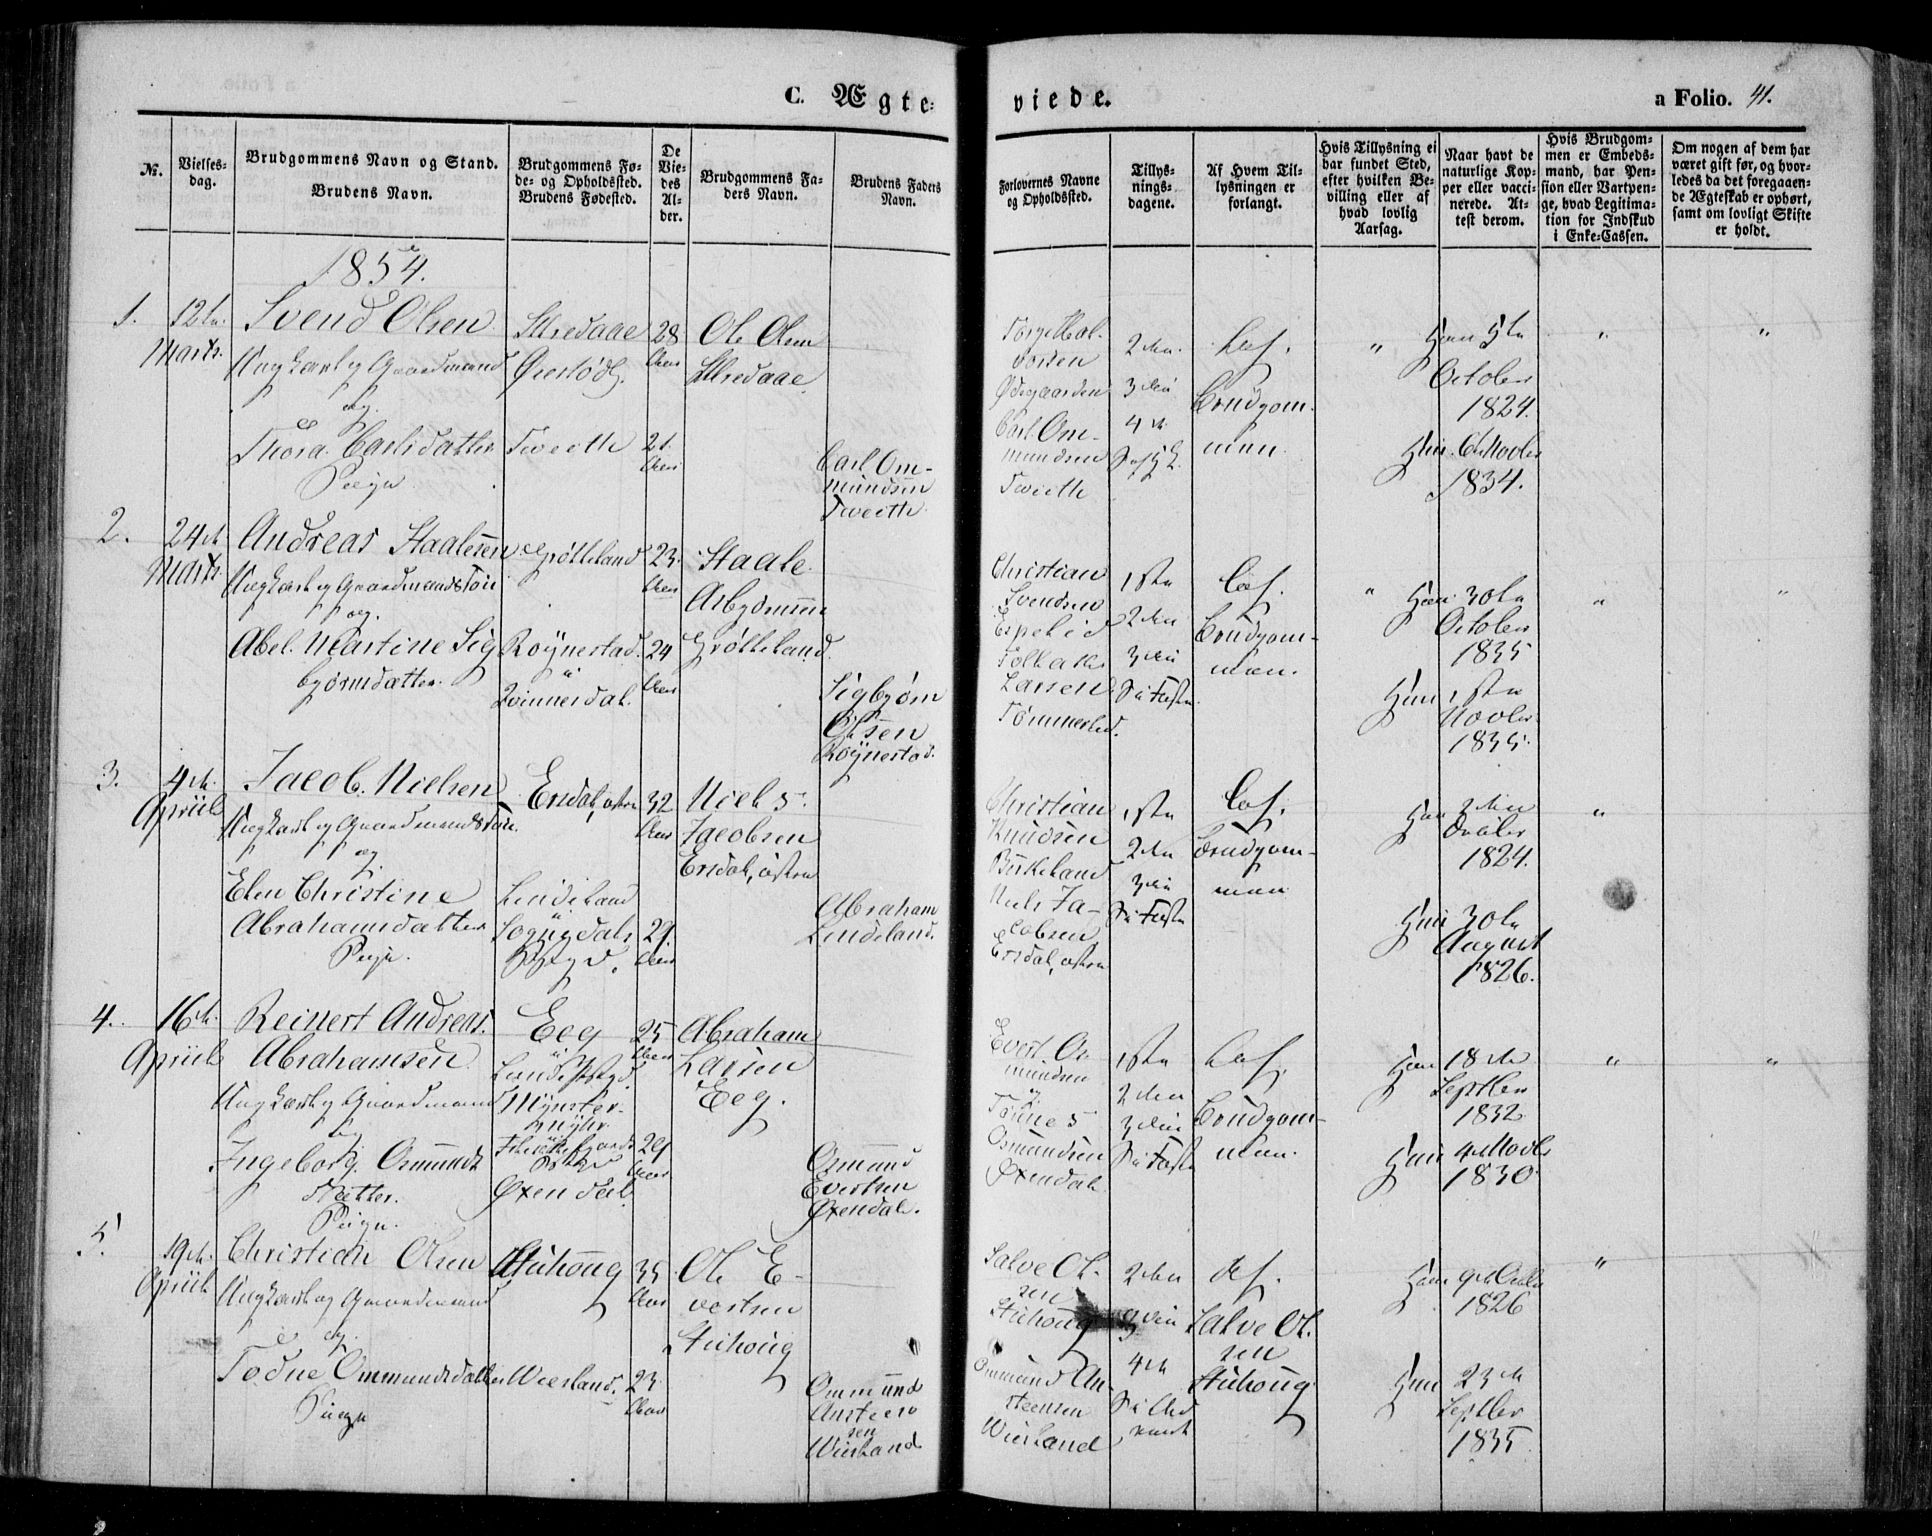 C. Ægte-
viede.
a Folio. 41.
№.
Vielses-
dag.
Brudgommens Navn og Stand.
Brudens Navn.
Brudgommens Fø-
de- og Opholdssted.
Brudens Fødested.
De
Vie-
des
Al-
der.
Brudgommens Fa-
ders Navn.
Brudens Faders
Navn.
Forlovernes Navne
og Opholdssted.
Tillys-
nings-
dagene.
Af Hvem Til-
lysningen er
forlangt.
Hvis Tillysning ei
har fundet Sted,
efter hvilken Be-
villing eller af
hvad lovlig
Aarsag.
Naar havt de
naturlige Kop-
per eller vacci-
nerede. At-
test derom.
Hvis Brudgom-
men er Embeds-
mand, har Pen-
sion eller Vartpen-
ge, hvad Legitima-
tion for Indskud
i Enke-Cassen.
Om nogen af dem har
været gift før, og hvor-
ledes da det foregaaen-
de Ægteskab er ophørt,
samt om lovligt Skifte
er holdt.
1854.
1.
12te
Marts.
Svend Olsen
Ungkarl og Gaardmand
og
Thora Carlsdatter
Pige
Øvestød
Tveeth
28
Aar
21.
Aar
Ole Olsen
Carl Om-
mundsen
Tveeth
Torje Hal-
vorsen
Ødegaarden
Carl Om-
mundsen
Tveeth
2den
3die
4de
Brudgom-
men.
"
Han 5te
October
1824.
Hun 6te Novbr
1834.
"
"
2.
24de
Marts
Andreas Staalesen
Ungkarl og Gaardmandssøn
og
Abel Martine Sig
bjørnsdatter.
Grøtteland
Røynestad
i
Qvinnesdal.
23
Aar
24
Aar
Staale
Asbjørnsen
Grøtteland
Sigbjørn
Olsen
Røynestad.
Christian
Svendsen
Espelid
Tollak
Larsen
Tommerlid.
1ste
2den
3die
S i Faste
Brudgom-
men.
"
Han 30te
October
1835
Hun 1ste
Novbr
1835.
"
"
3.
4de
Apriil
Jacob Nielsen
Ungkarl og Gaardmandssøn.
og
Elen Christine
Abrahamsdatter
Pige.
Ersdal, østre
Lindeland
i
Sognedals
Pstgd.
32
Aar
29.
Aar
Niels
Jacobsen
Ersdal, østre
Abraham
Lindeland.
Christian
Knudsen
Birkeland
Niels Ja-
cobsen
Ersdal, østre
1ste
2den
3die
S i Faste
Brudgom-
men
Han 2den
1824.
Hun 30te
August
1826.
"
4.
16de
Apriil
Reinert Andreas
Abrahamsen
Ungkarl og Gaardmand
og
Ingeborg Osmunds
datter.
Pige.
Eeg
i
Øxendal
25
Aar
24
Aar
Abraham
Larsen
Eeg.
Osmund
Evertsen
Øxendal.
Evert Os
mundsen
og
Tønnes
Osmundsen
Øxendal
1ste
2den
3die
S i Faste
Brudgom-
men.
Han 18de
Septbr
1832
Hun 4de Novbr
1830
"
"
5.
19de
Apriil
Christian Olsen
Ungkarl og Gaardmand
og
Todne Ommundsdatter
Pige
Stuhoug
Wiesland.
35
Aar
23
Aar
Ole E-
vertsen
Stuhoug
Ommund
Ansteen
sen
Wiesland
Salve Ol-
sen
Stuhoug
Ommund An-
steensen
Wiesland
2den
3die
4de
S i Ad
vent
Af
Salve Ol-
sen
Stuhoug
Han 9de
1826
Hun 23de
Septbr
1835
"